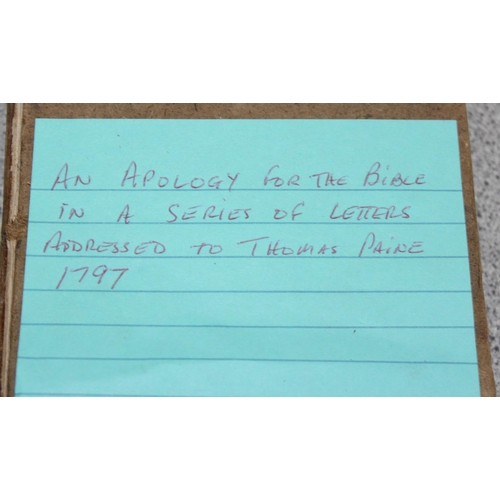 AN APOLOGY FOR THE BIBLE
IN A SERIES OF LETTERS
ADDRESSED TO THOMAS PAINE
1797